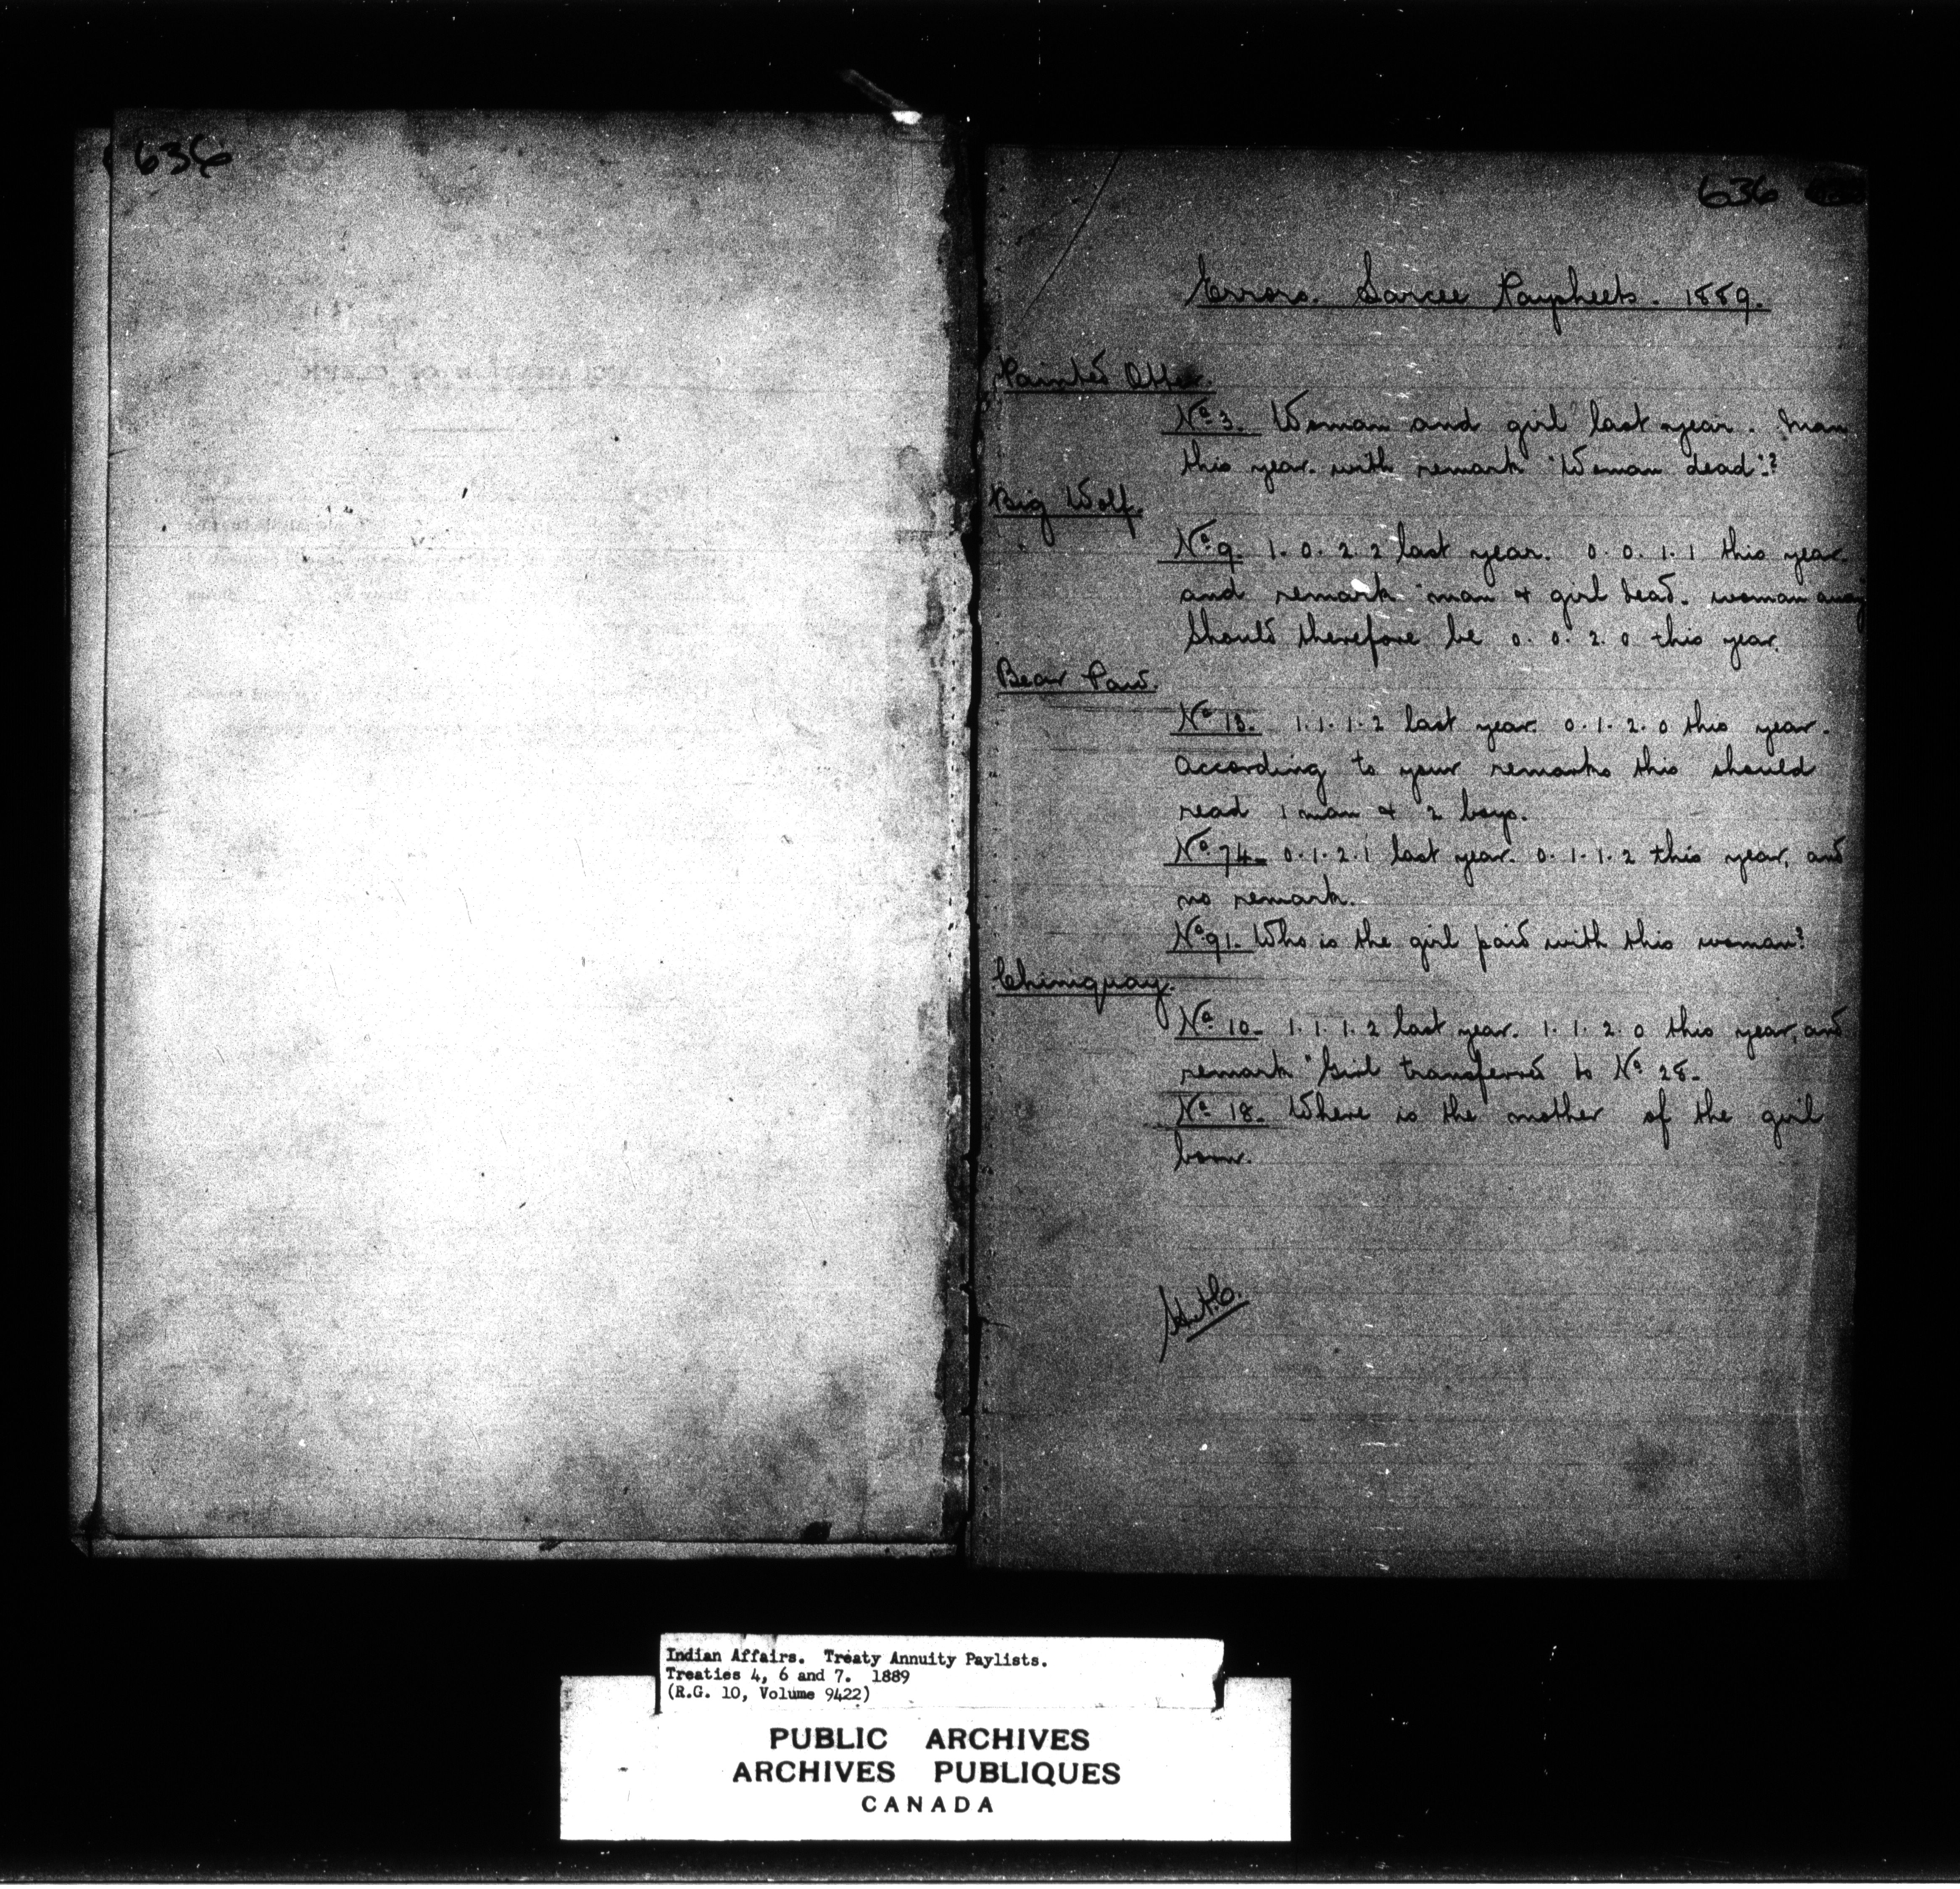 636
636
Errors. Sarcee Paysheets. 1889.
Painted Otter.
No. 3. Woman and girl last year. Man
this year with remark "Woman dead"?
Big Wolf.
No. 9. 1. 0. 2. 2 last year. 0. 0. 1. 1 this year
and remark "man & girl dead. woman away"
Should therefore be 0. 0. 2. 0 this year.
Bear Paw.
No. 13. 1. 1. 1. 2 last year. 0. 1. 2. 0 this year.
According to your remarks this should
read 1 man & 2 boys.
No. 74. 0. 1. 2. 1 last year. 0. 1. 1. 2 this year, and
no remark.
No. 91. Who is the girl paid with this woman?
Chiniquay.
No. 10. 1. 1. 1. 2 last year. 1. 1. 2. 0 this year, and
remark "Girl transferred to No. 28.
No. 18. Where is the mother of the girl
born.
Indian Affairs. Treaty Annuity Paylists.
Treaties 4, 6 and 7. 1889
(R.G. 10, Volume 9422)
PUBLIC ARCHIVES
ARCHIVES PUBLIQUES
CANADA